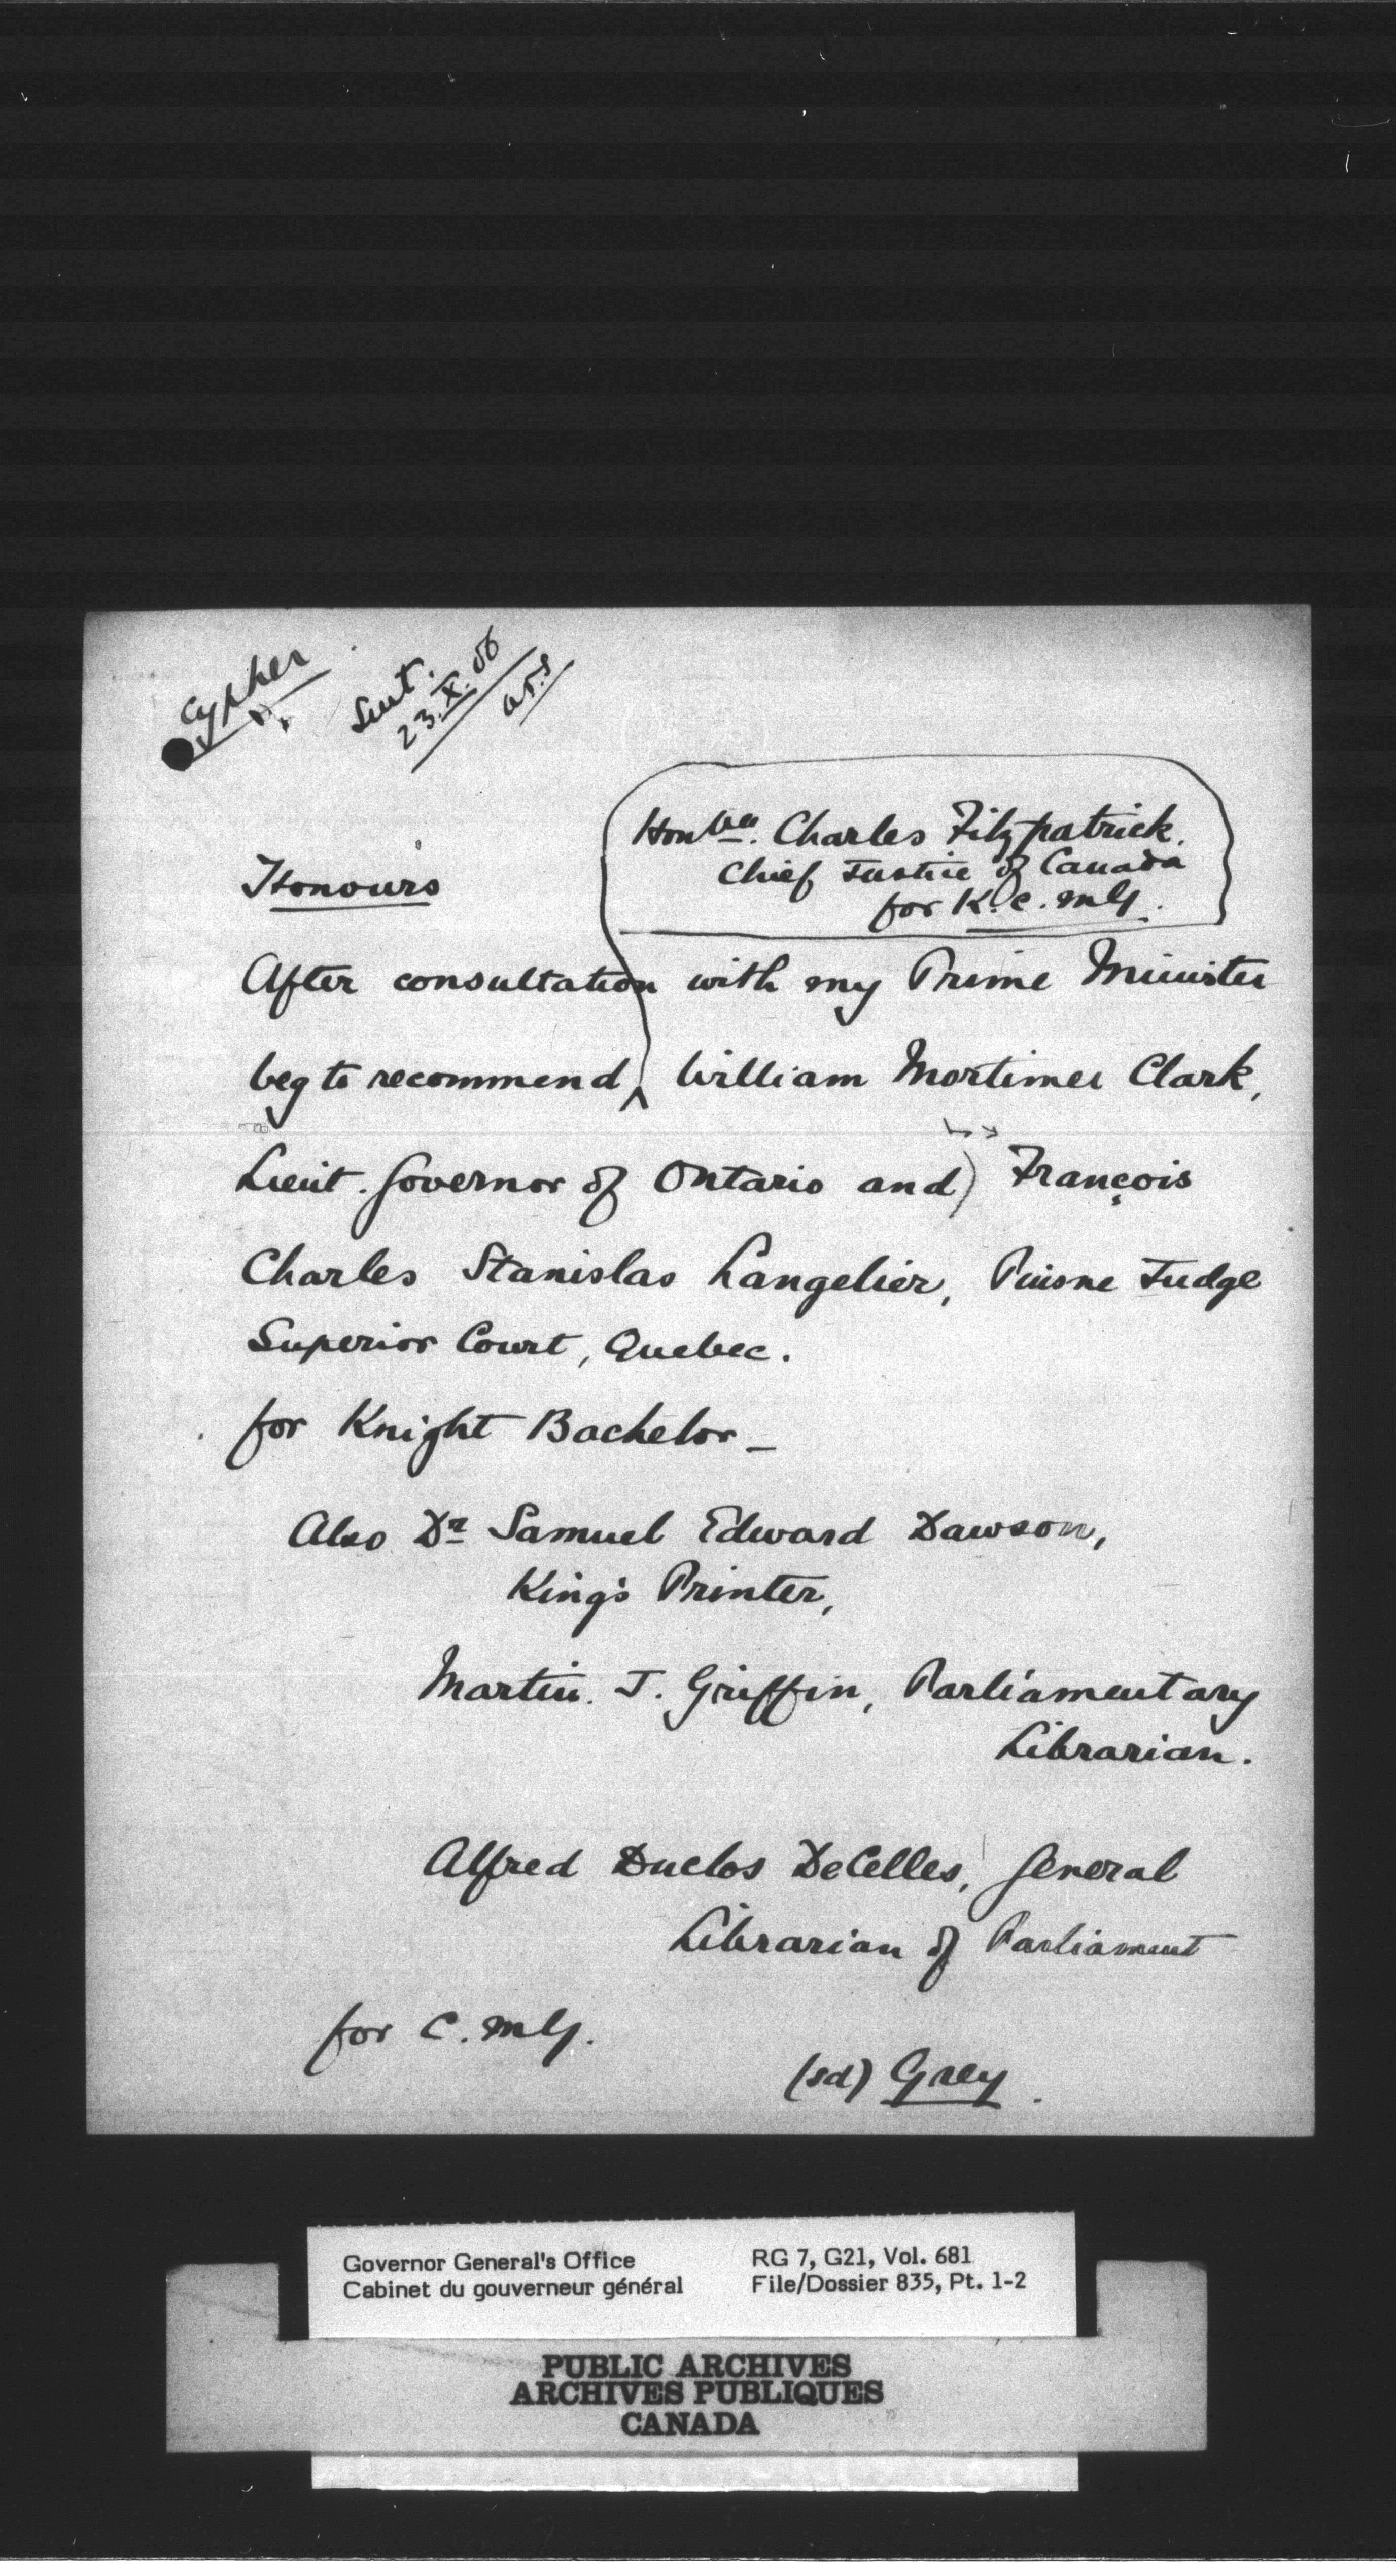 Cypher
Sent.
23.X.06
Honours
Honble. Charles Fitzpatrick.
Chief Justice of Canada
for K.C.MG.
After consultation with my Prime Minister
beg to recommend ^ William Mortimer Clark,
Lieut. Governor of Ontario and) François
Charles Stanislas Langelier, Puisne Judge
Superior Court, Quebec.
for Knight Bachelor –
Also Dr Samuel Edward Dawson,
King's Printer,
Martin. J. Griffin, Parliamentary
Librarian.
Alfred Duclos DeCelles, General
Librarian of Parliament
for C.MG.
(sd) Grey.
Governor General's Office
Cabinet du gouverneur général
RG 7, G21, Vol. 681
File/Dossier 835, Pt. 1-2
PUBLIC ARCHIVES
ARCHIVES PUBLIQUES
CANADA